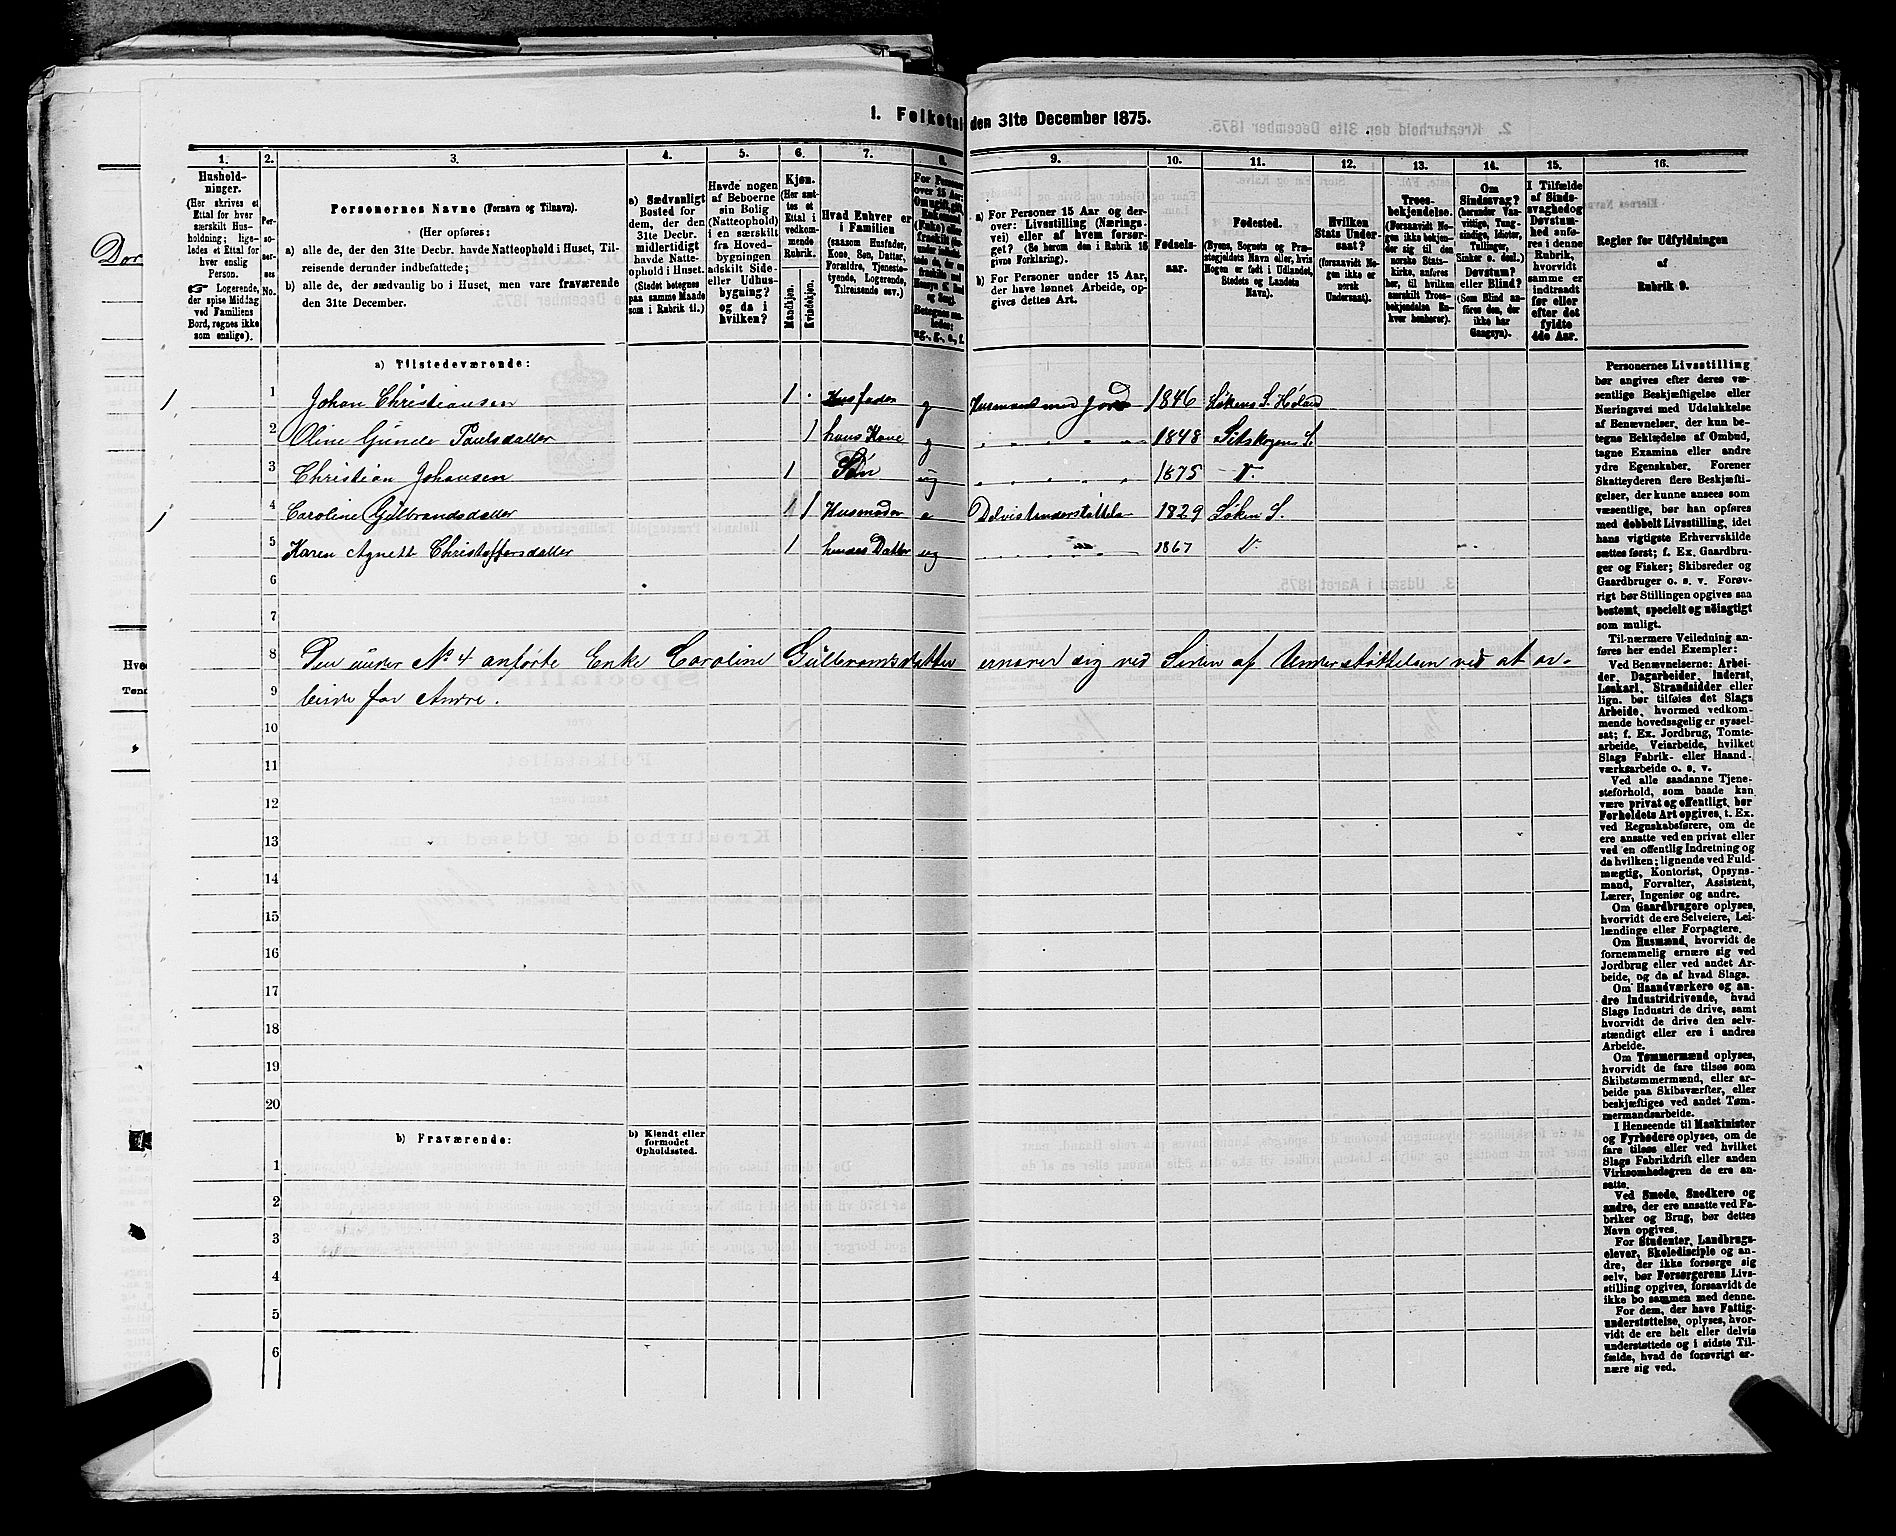 1. Folketal den 31te December 1875.
1. 2. 3. 4. 5. 6. 7. 8. 9. 10. 11. 12. 13. 14. 15. 16.
Hushold-
ninger.
(Her skrives et
Ettal for hver
særskilt Hus-
holdning; lige-
ledes et Ettal for
hver enslig
Person.
☞ Logerende,
der spise Middag
ved Familiens
Bord, regnes ikke
som enslige).
Per-
so-
ner-
nes
No.
Personernes Navne (Fornavn og Tilnavn).
(Her opføres:
a) alle de, der den 31te Decbr. havde Natteophold i Huset, Til-
reisende derunder indbefattede;
b) alle de, der sædvanlig bo i Huset, men vare fraværende
den 31te December.
a) Sædvanligt
Bosted for
dem, der den
31te Decbr.
midlertidigt
havde Natte-
ophold i Huset.
(Stedet betegnes
paa samme Maade
som i Rubrik 11.)
Havde nogen
af Beboerne
sin Bolig
(Natteophold)
i en særskilt
fra Hoved-
bygningen
adskilt Side-
eller Udhus-
bygning?
og da i
hvilken?
Kjøn.
(Her sæt-
tes et
Ettal i
vedkom-
mende
Rubrik.
Mandkjøn.
Kvindekjøn.
Hvad Enhver er
i Familien
(saasom Husfader,
Kone, Søn, Datter,
Forældre, Tjeneste-
tyende, Logerende,
Tilreisende osv.)
For Personer
over 15 Aar:
a) For Personer 15 Aar og der-
over: Livsstilling (Nærings-
vei) eller af hvem forsør-
get? (Se herom den i Rubrik 16
givne Forklaring).
b) For Personer under 15 Aar,
der have lønnet Arbeide, op-
gives dettes Art.
Fødsels-
aar.
Fødested.
(Byens, Sognets og Præ-
stegjeldets Navn eller, hvis
Nogen er født i Udlandet,
Stedets og Landets
Navn).
Hvilken
Stats Under-
saat?
(forsaavidt No-
gen ikke er
norsk
Undersaat).
Troes-
bekjendelse.
(Forsaavidt No-
gen ikke bekjen-
der sig til den
norske Stats-
kirke, anføres
her, til hvilken
særskilt Troes-
bekjendelse En-
hver henhører).
Om
Sindssvag?
(herunder Van-
vittige, Tung-
sindige, Idioter,
Tullinger,
Sinker o. desl.)
Døvstum?
eller Blind?
(Som Blind an-
føres den, der
ikke har
Gangsyn).
I Tilfælde
af Sinds-
svaghed og
Døvstum-
hed anfø-
res i denne
Rubrik,
hvorvidt
samme er
indtraadt
før eller
efter det
fyldte
4de Aar.
Regler for Udfyldningen
af
Rubrik 9.
a) Tilstedeværende:
1 1 Johan Christiansen 1 Husfader g Husmand med Jord 1846 Søkens S. Høland
2 Oline Gunde Paulsdatter 1 hans Kone g " " " " 1848 Setskogens S.
3 Christian Johansen 1 Søn ug " " " " 1875 "
1 4 Caroline Gulbrandsdatter 1 Husmoder e Delvist understøttelse 1829 Søken S.
5 Karen Agnett Christoffersdatter 1 hendes Datter ug " " " 1867
6
7
8 Den under No 4 anførte Enke Caroline Gulbramsdatter ernærer sig ved Siden af Understøttelsen ved at ar-
9 beide for Andre.
10
11
12
13
14
15
16
17
18
19
20
b) Fraværende:
b) Kjendt eller
formodet
Opholdssted.
1
2
3
4
5
6
Personernes Livsstilling
bør angives efter deres væ-
sentlige Beskjæftigelse eller
Næringsvei med Udelukkelse
af Benævnelser, der kun be-
tegne Beklædelse af Ombud,
tagne Examina eller andre
ydre Egenskaber. Forener
Skatteyderen flere Beskjæfti-
gelser, der kunne ansees som
væsentlige, bør han opføres
med dobbelt Livsstilling, idet
hans vigtigste Erhvervskilde
sættes først; f. Ex. Gaardbru-
ger og Fisker; Skibsreder og
Gaardbruger o. s. v. Forøv-
rigt bør Stillingen opgives saa
bestemt, specielt og nøiagtigt
som muligt.
Til nærmere Veiledning an-
føres her endel Exempler:
Ved Benævnelserne: Arbei-
der, Dagarbeider, Inderst,
Løskarl, Strandsidder eller
lign. bør tilføies det Slags
Arbeide, hvormed vedkom-
mende hovedsagelig er syssel-
sat; f. Ex. Jordbrug, Tomte-
arbeide, Veiarbeide, hvilket
Slags Fabrik- eller Haand-
værksarbeide o. s. v.
Ved alle saadanne Tjene-
steforhold, som baade kan
være privat og offentligt, bør
Forholdets Art opgives, t. Ex.
ved Regnskabsførere, om de
ere ansatte ved en privat eller
ved en offentlig Indretning og
da hvilken; lignende ved Fuld-
mægtig, Kontorist, Opsyns-
mand, Forvalter, Assistent,
Lærer, Ingeniør og andre.
Om Gaardbrugere oplyses,
hvorvidt de ere Selveiere, Lei-
lændinge eller Forpagtere.
Om Husmænd, hvorvidt de
fornemmelig ernære sig ved
Jordbrug eller ved andet Ar-
beide, og da af hvad Slags.
Om Haandværkere og an-
dre Industridrivende, hvad
Slags Industri de drive, samt
hvorvidt de drive den selv-
stændigt eller ere i andres
Arbeide.
Om Tømmermænd oplyses,
hvorvidt de fare tilsøs som
Skibstømmermænd, eller ar-
beide paa Skibsværfter, eller
beskjæftiges ved andet Tøm-
mermandsarbeide.
I Henseende til Maskinister
og Fyrbødere oplyses, om de
fare tilsøs eller ved hvilket
Slags Fabrikdrift eller anden
Virksomhedsgren de ere an-
satte.
Ved Smede, Snedkere og
andre, der ere ansatte ved Fa-
briker og Brug, bør dettes
Navn opgives.
For Studenter, Landbrugs-
elever, Skoledisciple og an-
dre, der ikke forsørge sig
selv, bør Forsørgerens Livs-
stilling opgives, forsaavidt de
ikke bo sammen med denne.
For dem, der have Fattig-
understøttelse, oplyses, hvor-
vidt de ere helt eller delvis
understøttede og i sidste Til-
fælde, hvad de forøvrigt er-
nære sig ved.